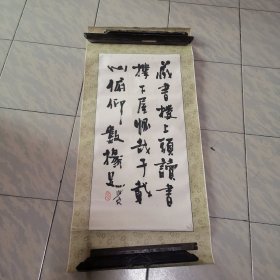 藏書樓上頭讀書
樓下屋懷哉千載
心俯仰數椽足